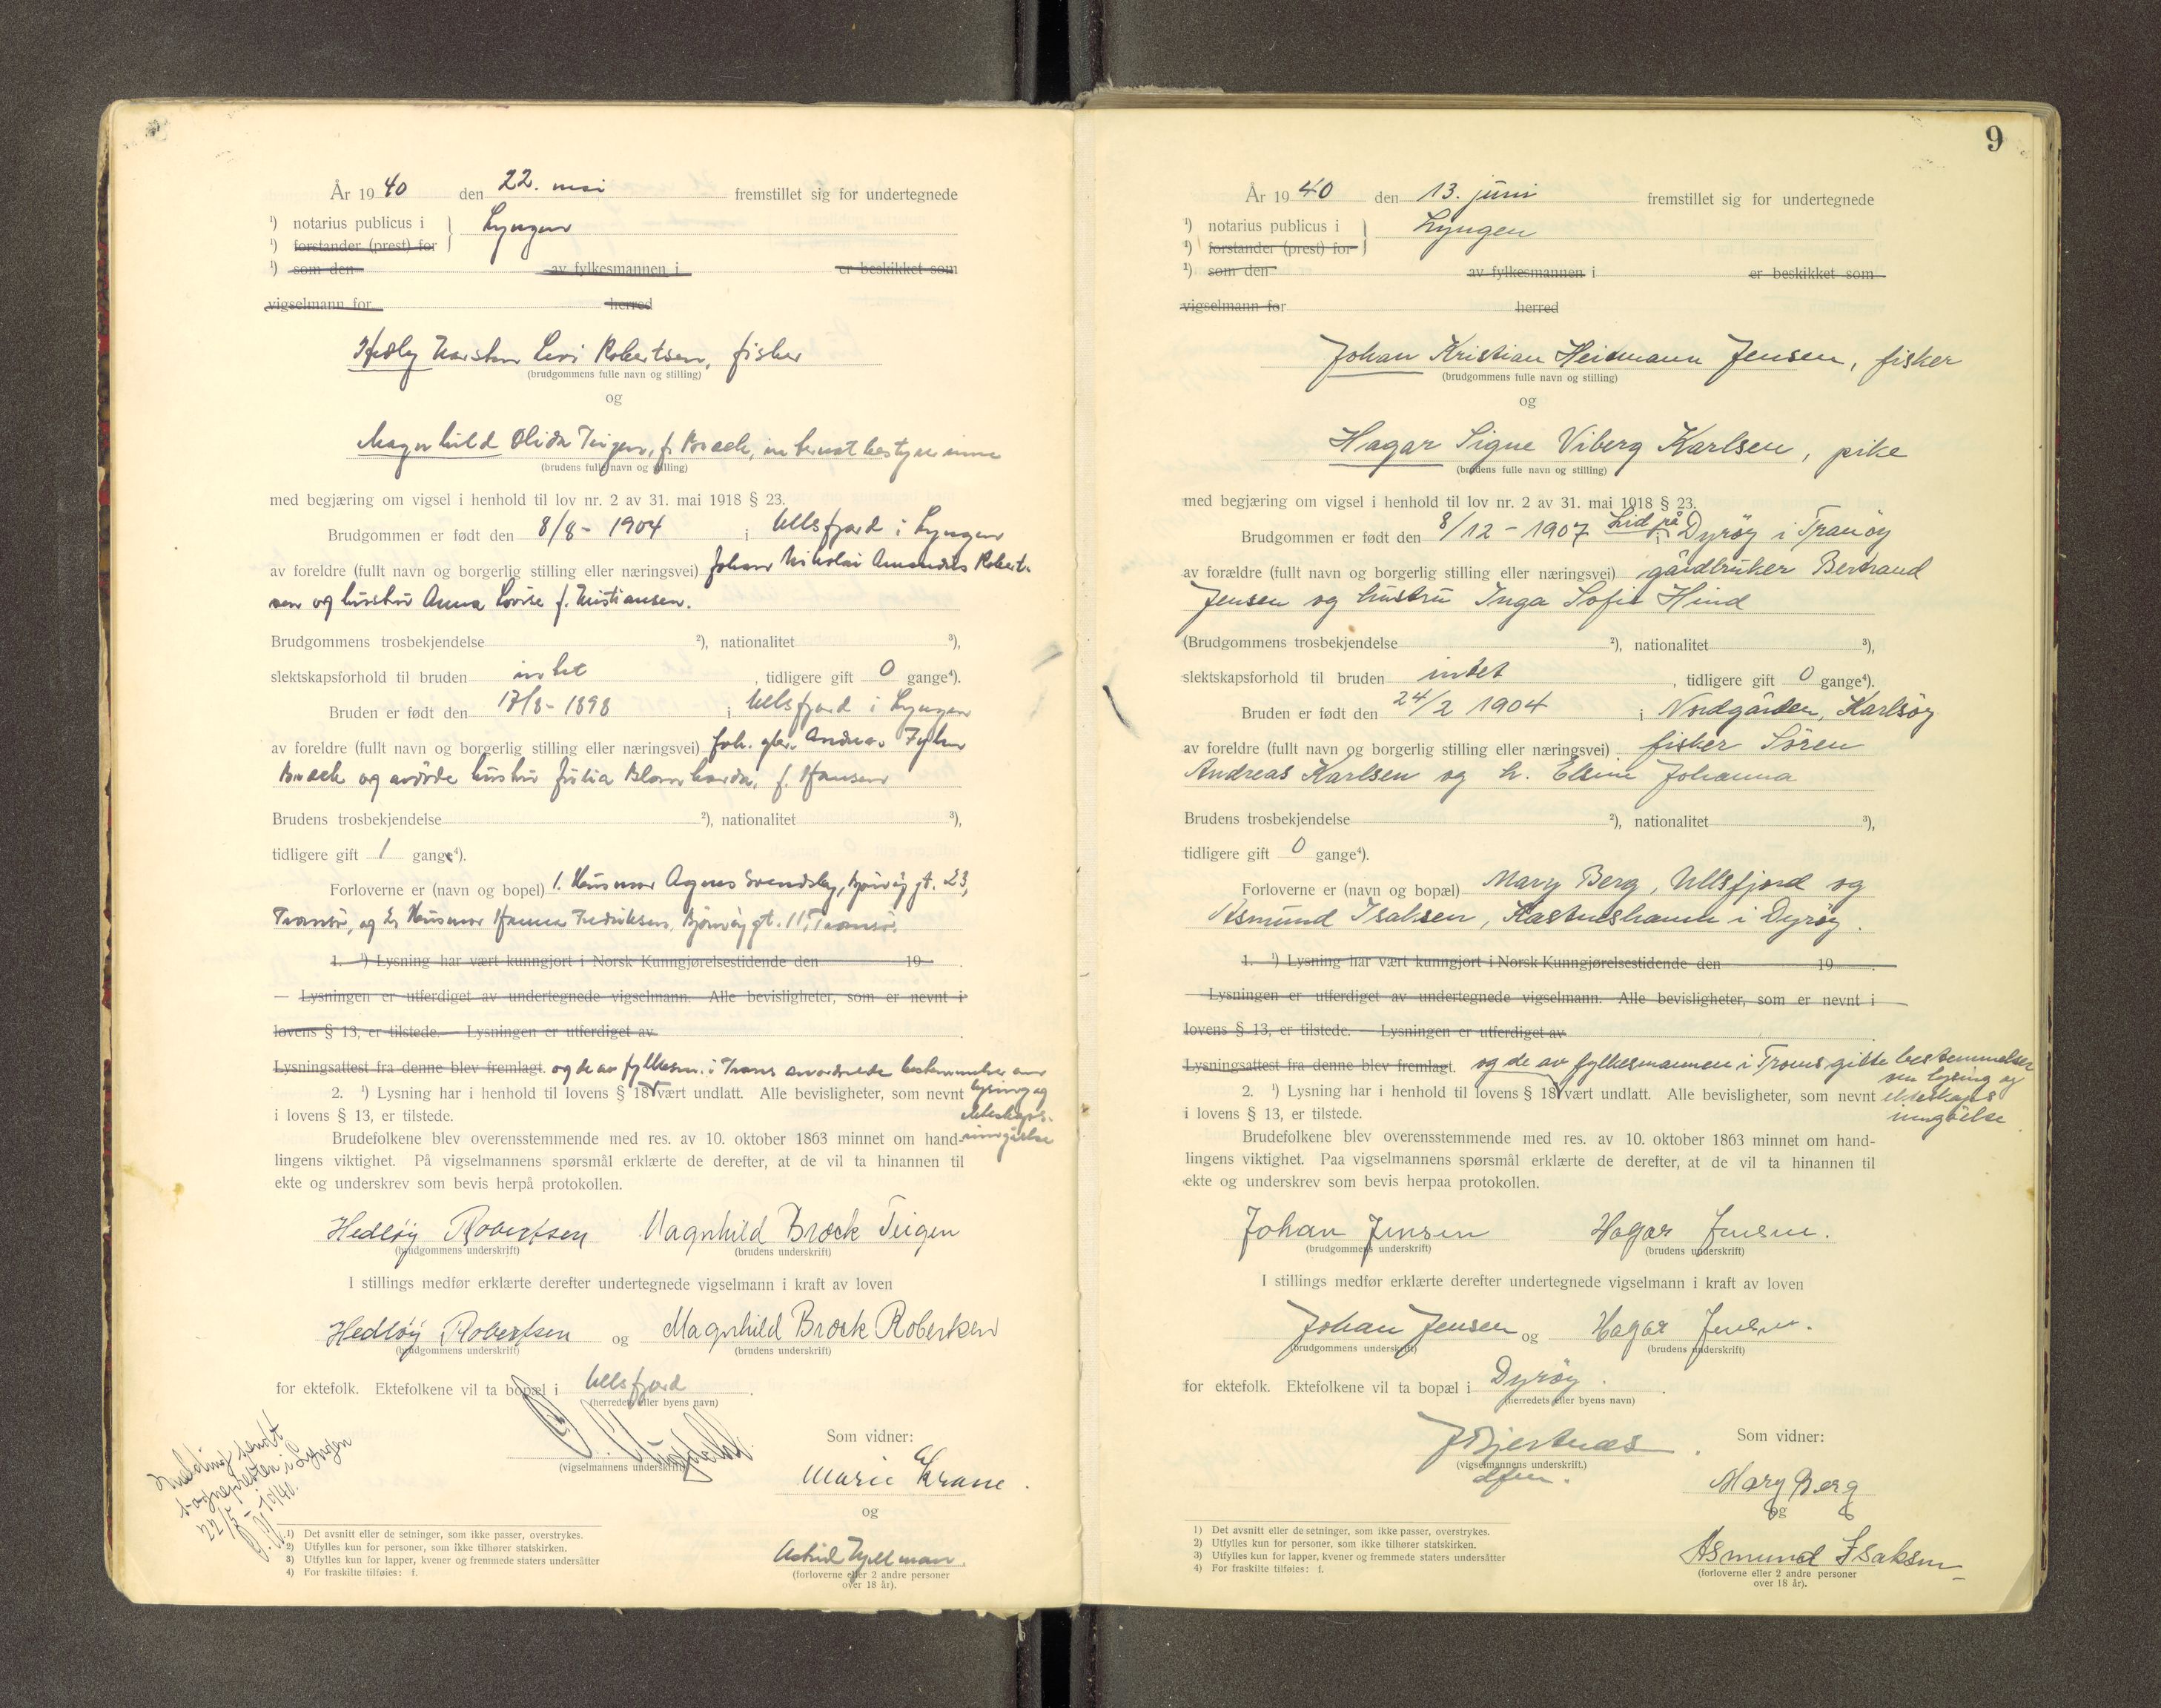 År 1940 den 22. mai fremstillet sig for undertegnede
¹) notarius publicus i } Lyngen
¹) forstander (prest) for
¹) som den av fylkesmannen i er beskikket som
vigselmann for herred
Hedley Karsten Levi Robertsen, fisker
(brudgommens fulle navn og stilling)
og
Magnhild Olida Teigen, f. Broek,
(brudens fulle navn og stilling)
med begjæring om vigsel i henhold til lov nr. 2 av 31. mai 1918 § 23.
Brudgommen er født den 8/8 - 1904 i Ullsfjord i Lyngen
av foreldre (fullt navn og borgerlig stilling eller næringsvei) Johan Nikolai Amandus Robert-
sen og hustru Anna Lovise f. Kristiansen.
Brudgommens trosbekjendelse ²), nationalitet ³),
slektskapsforhold til bruden intet, tidligere gift 0 gange⁴).
Bruden er født den 17/8 - 1898 i Ullsfjord i Lyngen
av foreldre (fullt navn og borgerlig stilling eller næringsvei) Joh. Andreas
Broek og avdøde hustru Julia f. Hansen
Brudens trosbekjendelse ²), nationalitet ³),
tidligere gift 1 gang⁴).
Forloverne er (navn og bopel) 1. Husmor Agnes Svendsby, gt. 23,
Tromsø, og 2. Husmor Hanna Fredriksen, gt. 11, Tromsø.
1. ¹) Lysning har vært kunngjort i Norsk Kunngjørelsestidende den 19 .
— Lysningen er utferdiget av undertegnede vigselmann. Alle bevisligheter, som er nevnt i
lovens § 13, er tilstede. — Lysningen er utferdiget av .
Lysningsattest fra denne blev fremlagt. og de av fylkesm. i Troms anordnede bestemmelser om
2. ¹) Lysning har i henhold til lovens § 18 vært undlatt. Alle bevisligheter, som nevnt lysning og
i lovens § 13, er tilstede. ekteskaps-
Brudefolkene blev overensstemmende med res. av 10. oktober 1863 minnet om hand- inngåelse
lingens viktighet. På vigselmannens spørsmål erklærte de derefter, at de vil ta hinannen til
ekte og underskrev som bevis herpå protokollen.
Hedløy Robertsen Magnhild Brock Teigen
(brudgommens underskrift) (brudens underskrift)
I stillings medfør erklærte derefter undertegnede vigselmann i kraft av loven
Hedløy Robertsen og Magnhild Brock Robertsen
(brudgommens underskrift) (brudens underskrift)
for ektefolk. Ektefolkene vil ta bopæl i Ullsfjord .
(herredets eller byens navn)
Som vidner:
(vigselmannens underskrift)
Marie Krane.
og
Astrid Hjellman.
(forloverne eller 2 andre personer
over 18 år).
Melding sendt
sognepresten i Lyngen
22/5 - 1940.
¹) Det avsnitt eller de setninger, som ikke passer, overstrykes.
2) Utfylles kun for personer, som ikke tilhører statskirken.
3) Utfylles kun for lapper, kvener og fremmede staters undersåtter
4) For fraskilte tilføies: f.
9
År 1940 den 13. juni fremstillet sig for undertegnede
¹) notarius publicus i } Lyngen
¹) forstander (prest) for
¹) som den av fylkesmannen i er beskikket som
vigselmann for herred
Johan Kristian Heidmann Jensen, fisker
(brudgommens fulle navn og stilling)
og
Hagar Signe Viberg Karlsen, pike
(brudens fulle navn og stilling)
med begjæring om vigsel i henhold til lov nr. 2 av 31. mai 1918 § 23.
Brudgommen er født den 8/12 - 1907 i Lid på Dyrøy i Tranøy
av forældre (fullt navn og borgerlig stilling eller næringsvei) gårdbruker Bertrand
Jensen og hustru Inga Sofie Hind
(Brudgommens trosbekjendelse ²), nationalitet ³),
slektskapsforhold til bruden intet, tidligere gift 0 gange⁴).
Bruden er født den 24/2 1904 i Nordgården, Karlsøy
av foreldre (fullt navn og borgerlig stilling eller næringsvei) fisker Sören
Andreas Karlsen og h. Elsine Johanna
Brudens trosbekjendelse ²), nationalitet ³),
tidligere gift 0 gange⁴).
Forloverne er (navn og bopæl) Mary Berg, Ullsfjord og
Asmund Isaksen, Kastneshamn i Dyröy.
1. ¹) Lysning har vært kunngjort i Norsk Kunngjørelsestidende den 19 .
— Lysningen er utferdiget av undertegnede vigselmann. Alle bevisligheter, som er nevnt i
lovens § 13, er tilstede. — Lysningen er utferdiget av
Lysningsattest fra denne blev fremlagt. og de av fylkesmannen i Troms gitte bestemmelser
om lysing og
2. ¹) Lysning har i henhold til lovens § 18 vært undlatt. Alle bevisligheter, som nevnt ekteskaps
i lovens § 13, er tilstede. inngåelse.
Brudefolkene blev overensstemmende med res. av 10. oktober 1863 minnet om hand-
lingens viktighet. Paa vigselmannens spørsmål erklærte de derefter, at de vil ta hinannen til
ekte og underskrev som bevis herpaa protokollen.
Johan Jensen Hagar Jensen.
(brudgommens underskrift) (brudens underskrift)
I stillings medfør erklærte derefter undertegnede vigselmann i kraft av loven
Johan Jensen og Hagar Jensen.
(brudgommens underskrift) (brudens underskrift)
for ektefolk. Ektefolkene vil ta bopæl i Dyröy.
(herredets eller byens navn)
J Bjertnæs. Som vidner:
(vigselmannens underskrift.)
dfm.
Mary Berg
og
Asmund Isaksen
(forloverne eller 2 andre personer
over 18 år).
1) Det avsnitt eller de setninger, som ikke passer, overstrykes.
2) Utfylles kun for personer, som ikke tilhører statskirken.
3) Utfylles kun for lapper, kvener og fremmede staters undersåtter
4) For fraskilte tilføies: f.